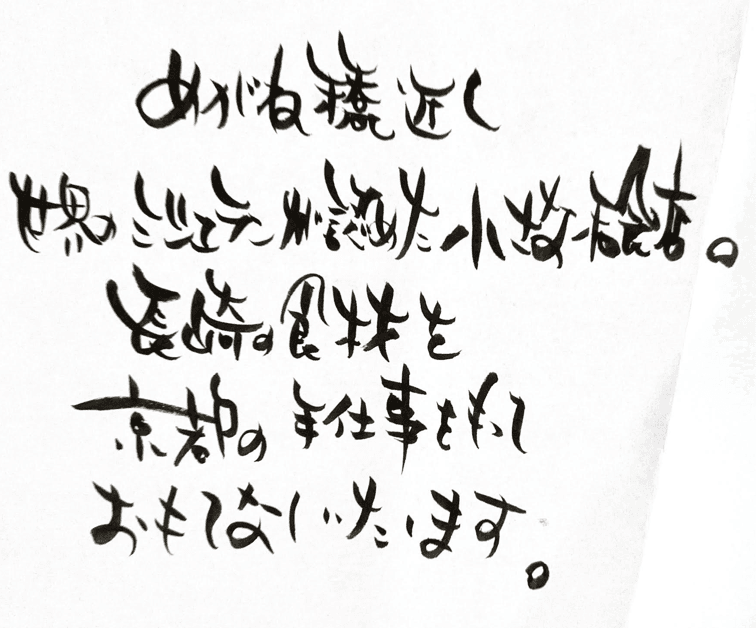 めがね橋近く
世界のミシュランが認めた小さな和食店。
長崎の食材を
京都の手仕事をもって
おもてなしいたします。